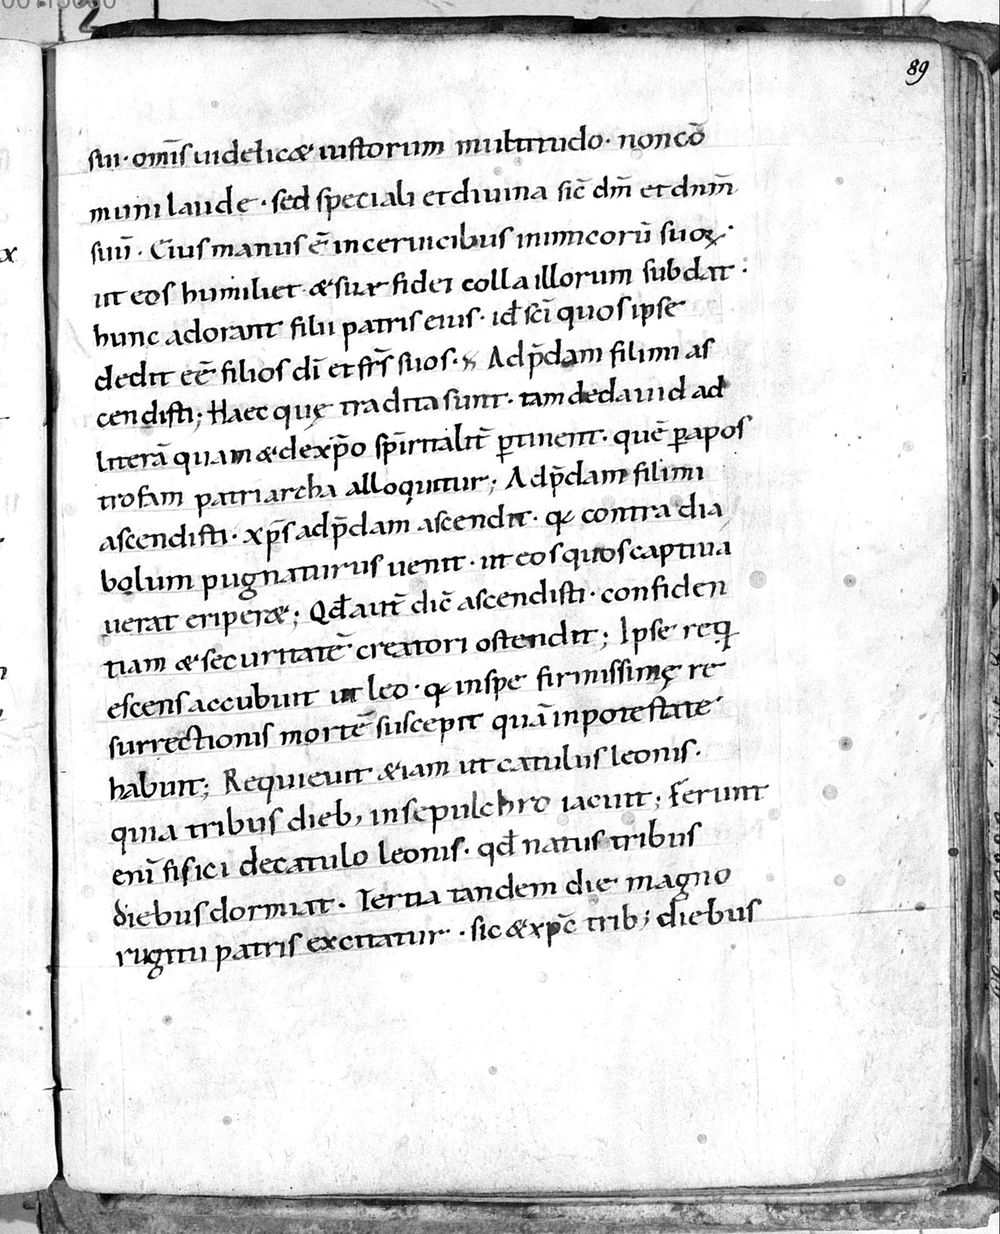 89
sui· om̄s uidelicæ iustorum multitudo· noncō
muni laude· sed speciali et diuina sic̄ dm̄ et dnm̄
suū· Cius manus ē in ceruicibus inimicorū suoꝝ·
ut eos humiliet & sue fidei colla illorum subdat:
hunc adorant filii patris eius· id̄ sci quos ipse
dedit eē filios dī et frs̄ suos· Ad p̄dam fili mi as
cendisti; Haec quę tradita sunt· tam de dauid ad
literā quam & de xp̄o sp̄iritalit̄ ꝑtinent· quē ꝑ apos
trofam patriarcha alloquitur; Ad p̄dam fili mi
ascendisti· xp̄s ad p̄dam ascendit· qꝫ contra dia
bolum pugnaturus uenit· ut eos quos captiua
uerat eriperæ; Qd̄ aut̄ dic̄ ascendisti· confiden
tiam & securitatē creatori ostendit; Ipse req
escens accubuit ut leo· qꝫ in spe firmissimę re
surrectionis mortē suscepit quā in potestate
habuit; Requieuit &iam ut catulus leonis·
quia tribus dieb; in sepulchro iacuit; ferunt
enī fisici de catulo leonis· qd̄ natus tribus
diebus dormiat· Tertia tandem die magno
rugitu patris excitatur· sic & xp̄c trib; diebus